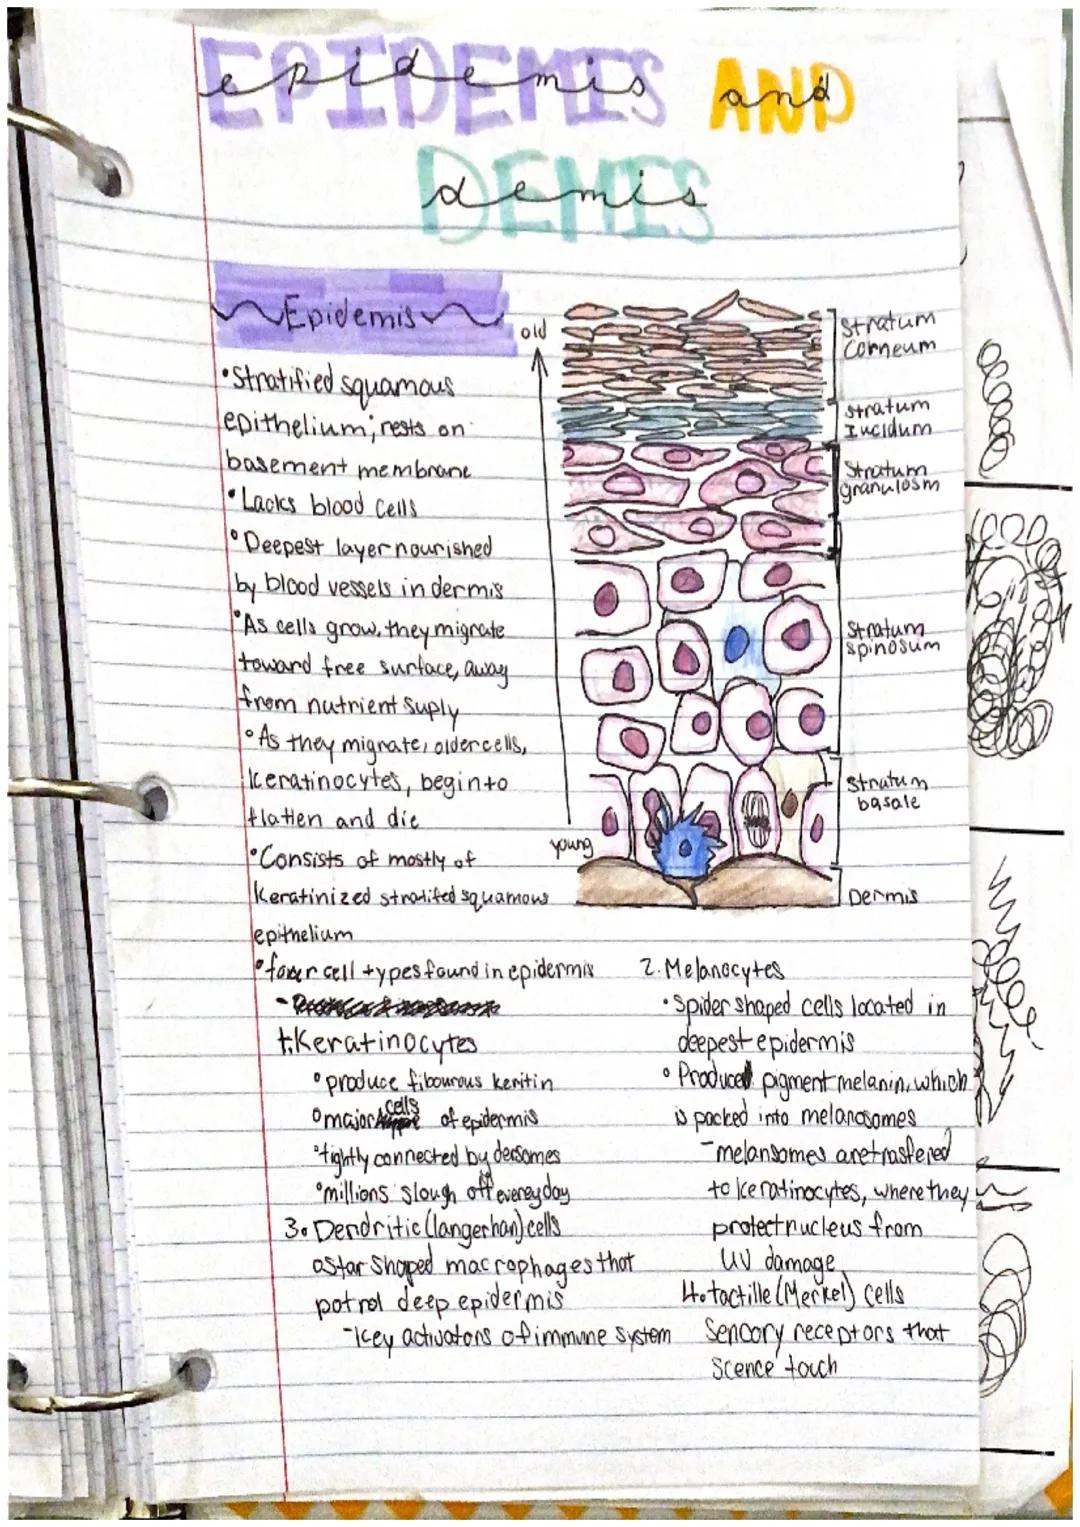 EPIDEMIS AND
epidemis and
DEMIS
demis
Epidemis
•Stratified squamous
epithelium; rests on
basement membrane
•Lacks blood cells
•Deepest layer nourished
by blood vessels in dermis
•As cells grow, they migrate
toward free surface, away
from nutrient suply
•As they migrate, older cells,
keratinocytes, begin to
flatten and die
•Consists of mostly of
keratinized stratifed squamous
epithelium
old
young
Stratum
Corneum
stratum
lucidum
Stratum
granulosm
Stratum
spinosum
Stratum
basale
Dermis
•four cell types found in epidermis
-
1.Keratinocytes
•produce fibourous keritin
•major cells of epidermis
•tightly connected by desomes
•millions slough off everey day
3. Dendritic (langerhan) cells
•Star shaped macrophages that
patrol deep epidermis
-key activators of immune system
2. Melanocytes
•Spider shaped cells located in
deepest epidermis
•Produce pigment melanin, which
is packed into melanosomes
-melansomes are trasfered
to keratinocytes, where they
protect nucleus from
UV damage
4. tactille (Merkel) cells
Sencory receptors that
scence touch